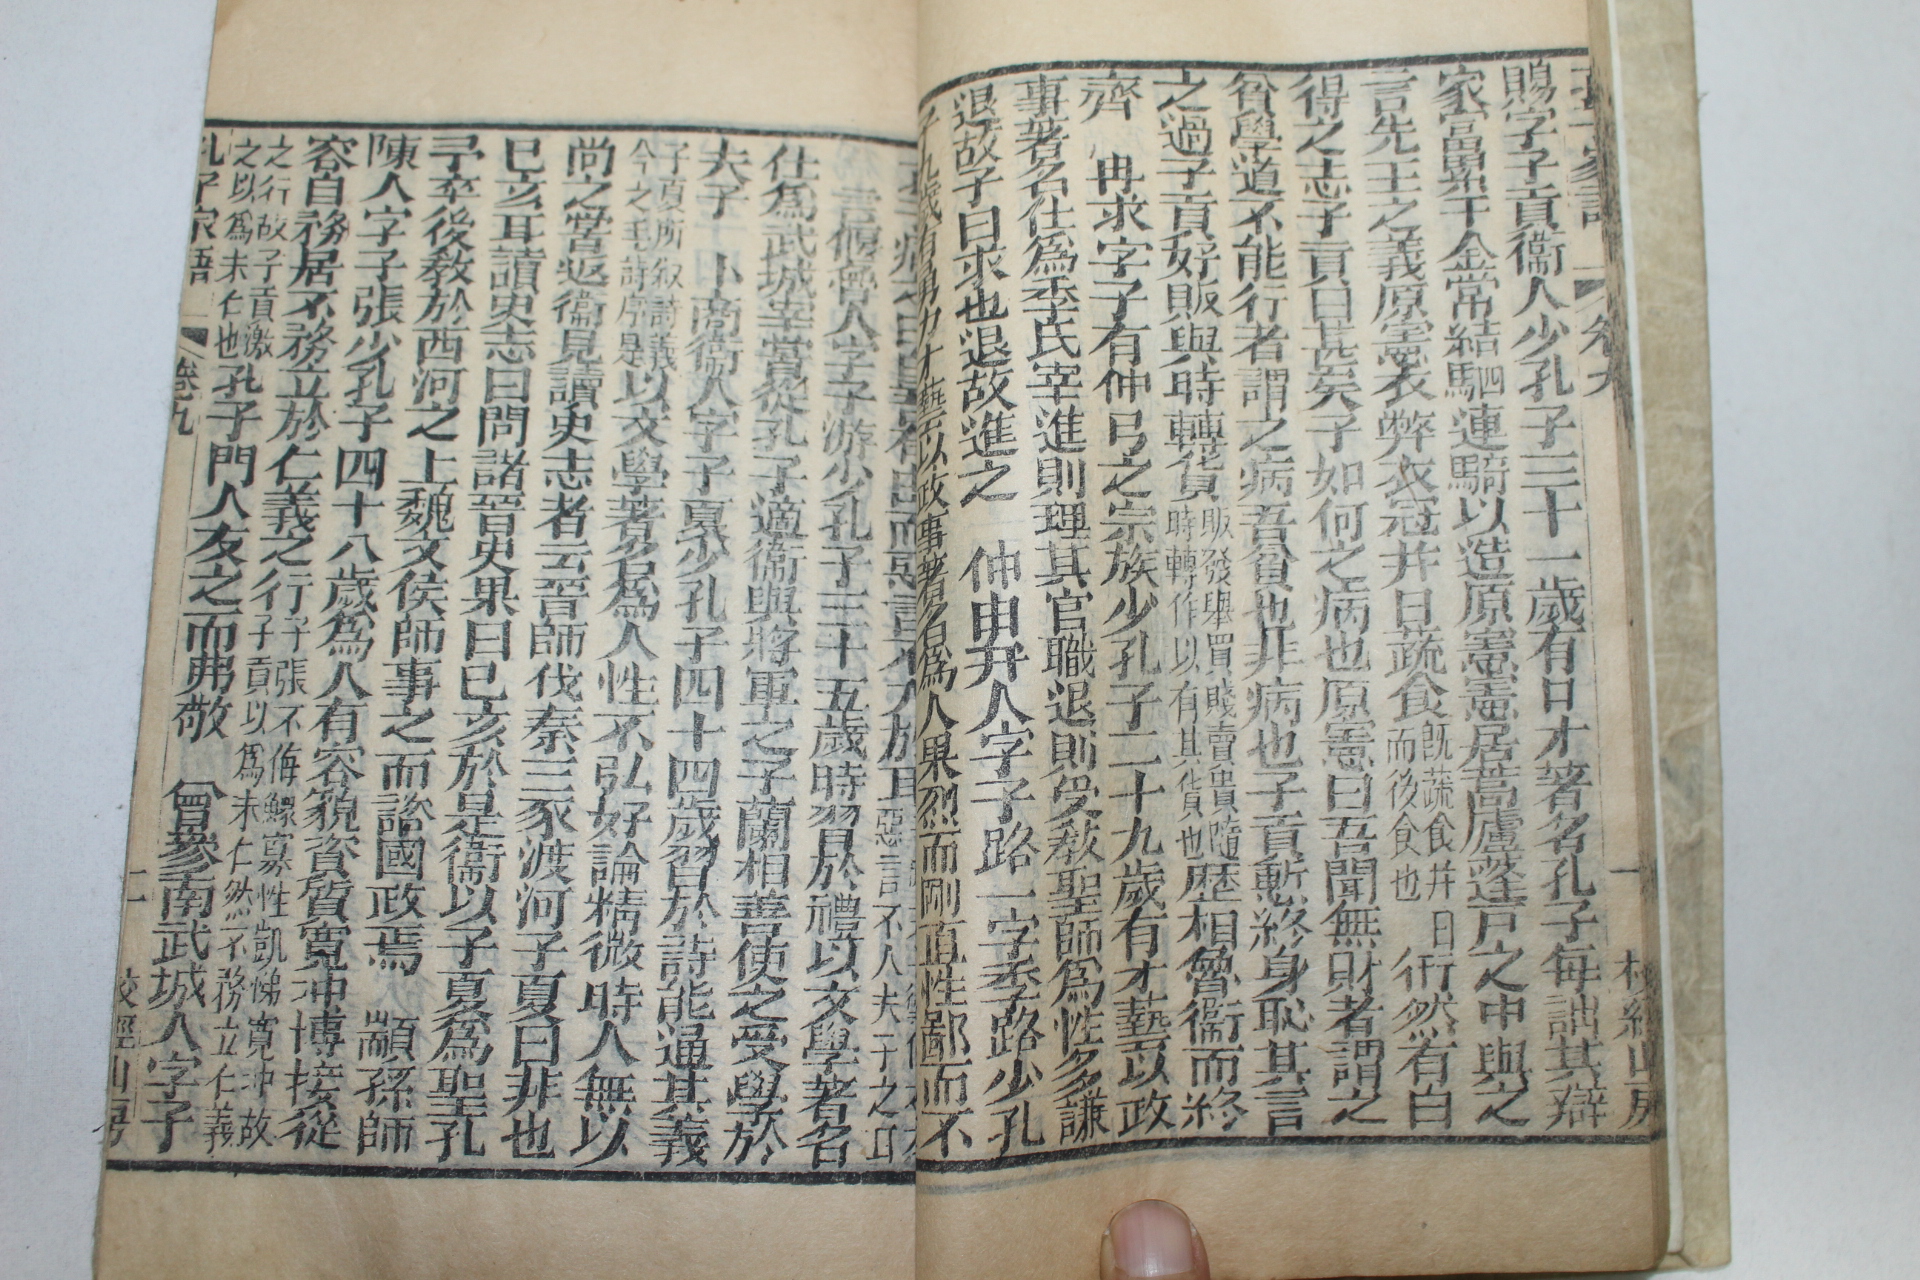 賜字子貢衞人少孔子三十一歲有口才著名孔子每詘其辯
家富累千金常結駟連騎以造原憲憲居蒿廬蓬戶之中與之
言先王之義原憲衣弊衣冠并日蔬食旣蔬食幷日而後食也衎然有自
得之志子貢曰甚矣子如何之病也原憲曰吾聞無財者謂之
貧學道不能行者謂之病吾貧也非病也子貢慙終身恥其言
之過子貢好販與時轉貨販發舉買賤賣貴隨時轉作以有其貨也歷相魯衞而終
齊 冉求字子有仲弓之宗族少孔子二十九歲有才藝以政
事著名仕爲季氏宰進則理其官職退則受教聖師爲性多謙
退故子曰求也退故進之 仲由弁人字子路一字季路少孔
子九歲有勇力才藝以政事著名爲人果烈而剛直性鄙而不
言偃魯人字子游少孔子三十五歲時習於禮以文學著名
仕爲武城宰嘗從孔子適衞與將軍之子蘭相善使之受學於
夫子 卜商衞人字子夏少孔子四十四歲習於詩能通其義
子夏所叙詩義今之毛詩序是以文學著名爲人性不弘好論精微時人無以
尚之嘗返衞見讀史志者云晉師伐秦三豕渡河子夏曰非也
已亥耳讀史志曰問諸晉史果曰已亥於是衞以子夏爲聖孔
子卒後教於西河之上魏文侯師事之而諮國政焉 顓孫師
陳人字子張少孔子四十八歲爲人有容貌資質寬冲博接從
容自務居不務立於仁義之行子張不侮鰥寡性凱悌寬冲故
之行故子貢激之以爲未仁也孔子門人友之而弗敬 曾參南武城人字子
孔子家語 卷九 二 校經山房